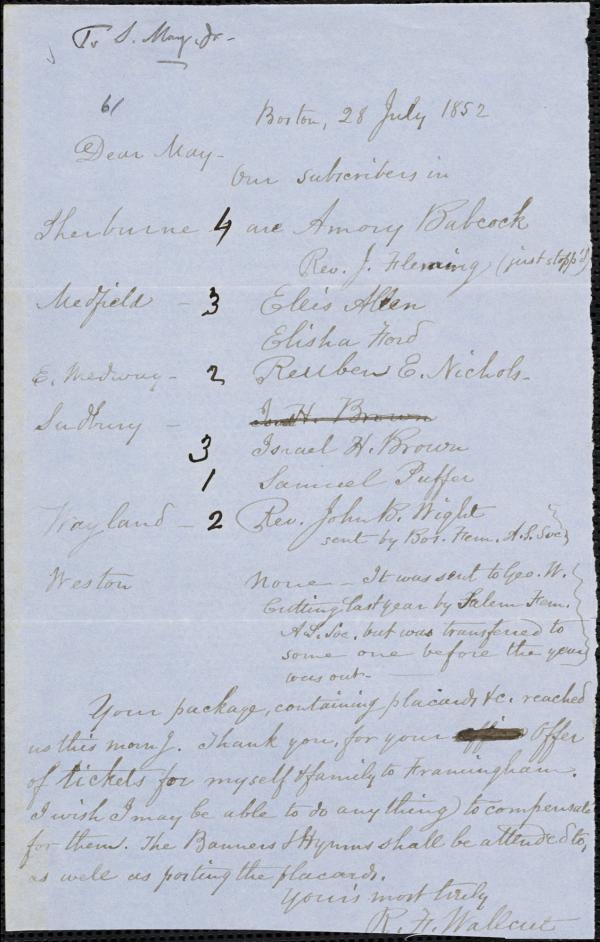 To S. May, Jr-
61
Boston, 28 July 1852
Dear May-
Our subscribers in
Sherburne 4 are Amory Babcock
Rev. J. Fleming (just stopp'd)
Medfield - 3 Ellis Allen
Elisha Ford
E. Medway - 2 Reuben E. Nichols-
Sudbury - H. Brown
3 Israel H. Brown
1 Samuel Puffer
Wayland - 2 Rev. John B. Wight
sent by Bos. Fem. A.S. Soc
Weston None - It was sent to Geo. W.
Cutting last year by Salem Fem.
A.S. Soc. but was transferred to
some one before the year
was out.
Your package, containing placards &c. reached
us this morng. Thank you, for your offer
of tickets for myself & family to Framingham.
I wish I may be able to do anything to compensate
for them. The Banners & Hymns shall be attended to,
as well as posting the placards.
Yours most truly
R. F. Wallcut